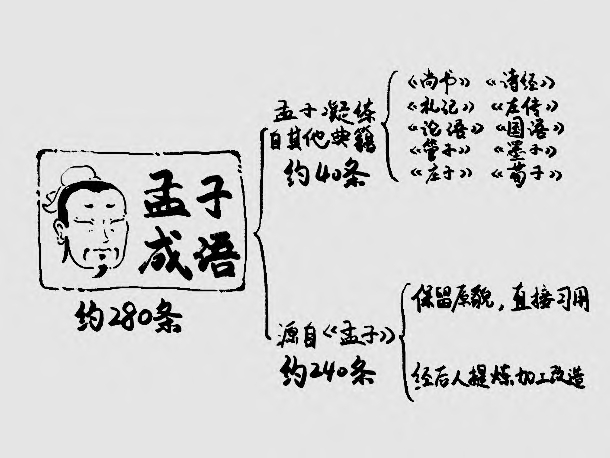 孟子
成语
约280条
孟子凝练
自其他典籍
约40条
《尚书》 《诗经》
《礼记》 《左传》
《论语》 《国语》
《管子》 《墨子》
《庄子》 《荀子》
源自《孟子》
约240条
保留原貌，直接习用
经后人提炼加工改造